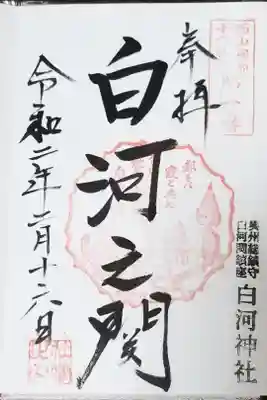 奉拝
白河之関
令和二年二月十六日
奥州総鎮守
白河関鎮座
白河神社